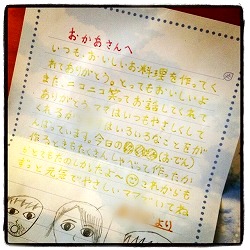 おかあさんへ
いつもおいしいお料理を作ってく
れてありがとう。とってもおいしいよ
ニコニコ笑ってお話してくれて
ありがとうママはいつもやさしくして
くれるが いろいろなことをが
んばっています。今日の (おでん)
作るときもたくさんしゃべって作ったか
らとてもたのしかったよ〜 これからも
ずっと元気でやさしいママでいてね
より